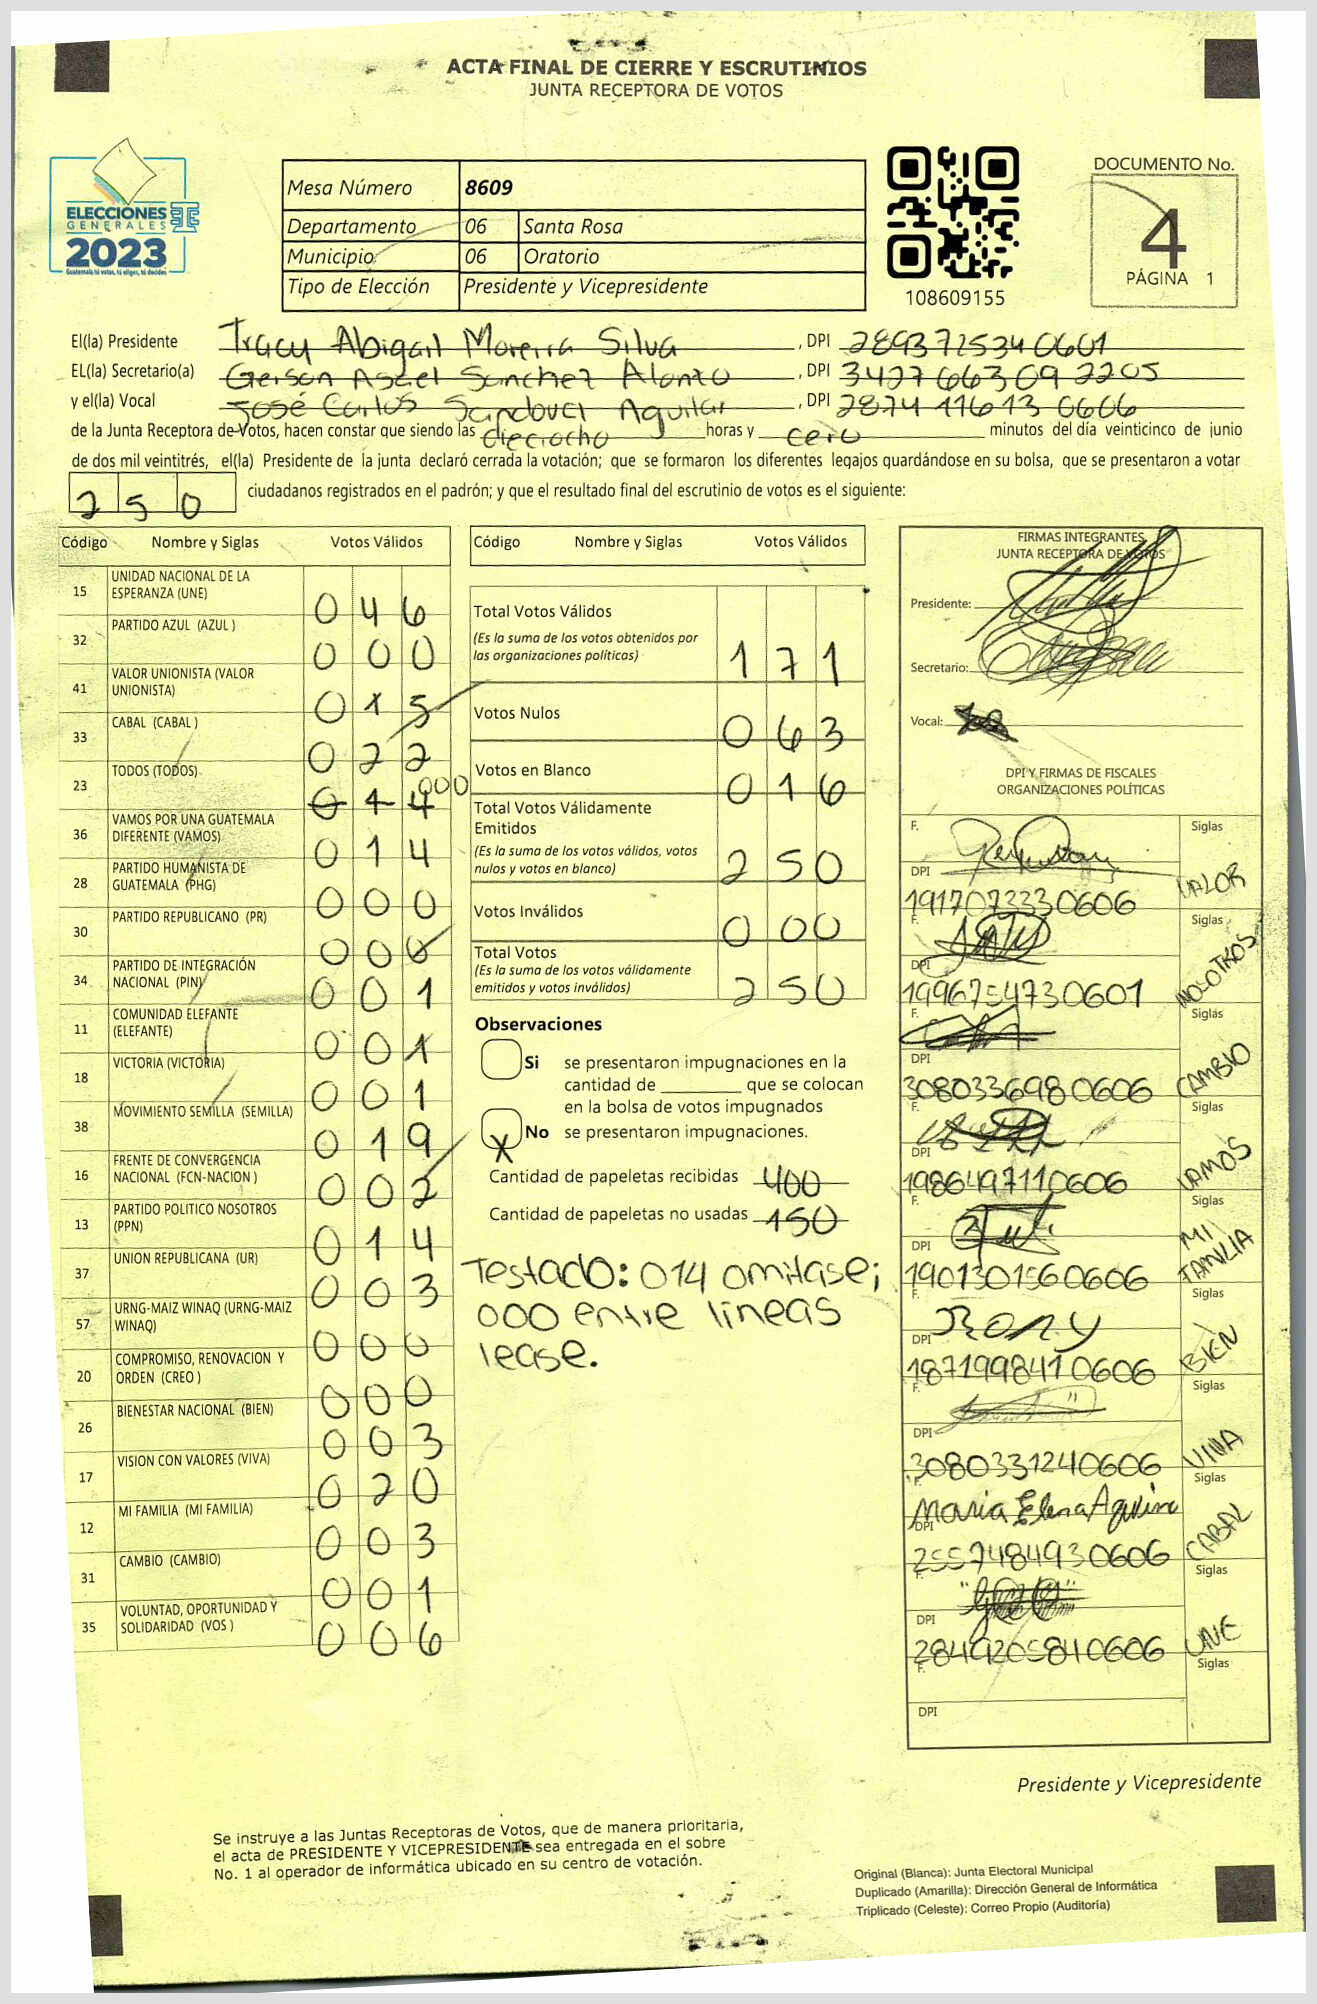 ACTA FINAL DE CIERRE Y ESCRUTINIOS
JUNTA RECEPTORA DE VOTOS
ELECCIONES
GENERALES
2023
Guatemala tú votas, tú eliges, tú decides
Mesa Número 8609
Departamento 06 Santa Rosa
Municipio 06 Oratorio
Tipo de Elección Presidente y Vicepresidente
108609155
DOCUMENTO No.
4
PÁGINA 1
El(la) Presidente Tracy Abigail Moreira Silva, DPI 2893725340601
EL(la) Secretario(a) Gerson Asael Sanchez Alonzo, DPI 3427663092205
y el(la) Vocal José Carlos Sandoval Aguilar, DPI 2874116130606
de la Junta Receptora de Votos, hacen constar que siendo las dieciocho horas y cero minutos del día veinticinco de junio
de dos mil veintitrés, el(la) Presidente de la junta declaró cerrada la votación; que se formaron los diferentes legajos quardándose en su bolsa, que se presentaron a votar
250 ciudadanos registrados en el padrón; y que el resultado final del escrutinio de votos es el siguiente:
Código Nombre y Siglas Votos Válidos
15 UNIDAD NACIONAL DE LA ESPERANZA (UNE) 046
32 PARTIDO AZUL (AZUL ) 000
41 VALOR UNIONISTA (VALOR UNIONISTA) 015
33 CABAL (CABAL ) 022
23 TODOS (TODOS) 014 000
36 VAMOS POR UNA GUATEMALA DIFERENTE (VAMOS) 014
28 PARTIDO HUMANISTA DE GUATEMALA (PHG) 000
30 PARTIDO REPUBLICANO (PR) 000
34 PARTIDO DE INTEGRACIÓN NACIONAL (PIN) 001
11 COMUNIDAD ELEFANTE (ELEFANTE) 001
18 VICTORIA (VICTORIA) 001
38 MOVIMIENTO SEMILLA (SEMILLA) 019
16 FRENTE DE CONVERGENCIA NACIONAL (FCN-NACION ) 002
13 PARTIDO POLITICO NOSOTROS (PPN) 014
37 UNION REPUBLICANA (UR) 003
57 URNG-MAIZ WINAQ (URNG-MAIZ WINAQ) 000
20 COMPROMISO, RENOVACION Y ORDEN (CREO ) 000
26 BIENESTAR NACIONAL (BIEN) 003
17 VISION CON VALORES (VIVA) 020
12 MI FAMILIA (MI FAMILIA) 003
31 CAMBIO (CAMBIO) 001
35 VOLUNTAD, OPORTUNIDAD Y SOLIDARIDAD (VOS ) 006
Código Nombre y Siglas Votos Válidos
Total Votos Válidos 171
(Es la suma de los votos obtenidos por
las organizaciones políticas)
Votos Nulos 063
Votos en Blanco 016
Total Votos Válidamente
Emitidos 250
(Es la suma de los votos válidos, votos
nulos y votos en blanco)
Votos Inválidos 000
Total Votos 250
(Es la suma de los votos válidamente
emitidos y votos inválidos)
Observaciones
Si se presentaron impugnaciones en la
cantidad de ________ que se colocan
en la bolsa de votos impugnados
X No se presentaron impugnaciones.
Cantidad de papeletas recibidas 400
Cantidad de papeletas no usadas 150
Testado: 014 omitase;
000 entre líneas
lease.
FIRMAS INTEGRANTES
JUNTA RECEPTORA DE VOTOS
Presidente:
Secretario:
Vocal:
DPI Y FIRMAS DE FISCALES
ORGANIZACIONES POLÍTICAS
F. Siglas
DPI 1917073330606 VALOR
F. Siglas
DPI 1996754730601 NOSOTROS
F. Siglas
DPI 3080336980606 CAMBIO
F. Siglas
DPI 1986497110606 VAMOS
F. Siglas
DPI 1901301560606 MI FAMILIA
F. Rony Siglas
DPI 1871998410606 BIEN
F. Siglas
DPI 3080331240606 VIVA
F. Maria Elena Aquino Siglas
DPI 2557484930606 CABAL
F. Siglas
DPI 2849205810606 UNE
F. Siglas
DPI
Presidente y Vicepresidente
Se instruye a las Juntas Receptoras de Votos, que de manera prioritaria,
el acta de PRESIDENTE Y VICEPRESIDENTE sea entregada en el sobre
No. 1 al operador de informática ubicado en su centro de votación.
Original (Blanca): Junta Electoral Municipal
Duplicado (Amarilla): Dirección General de Informática
Triplicado (Celeste): Correo Propio (Auditoría)